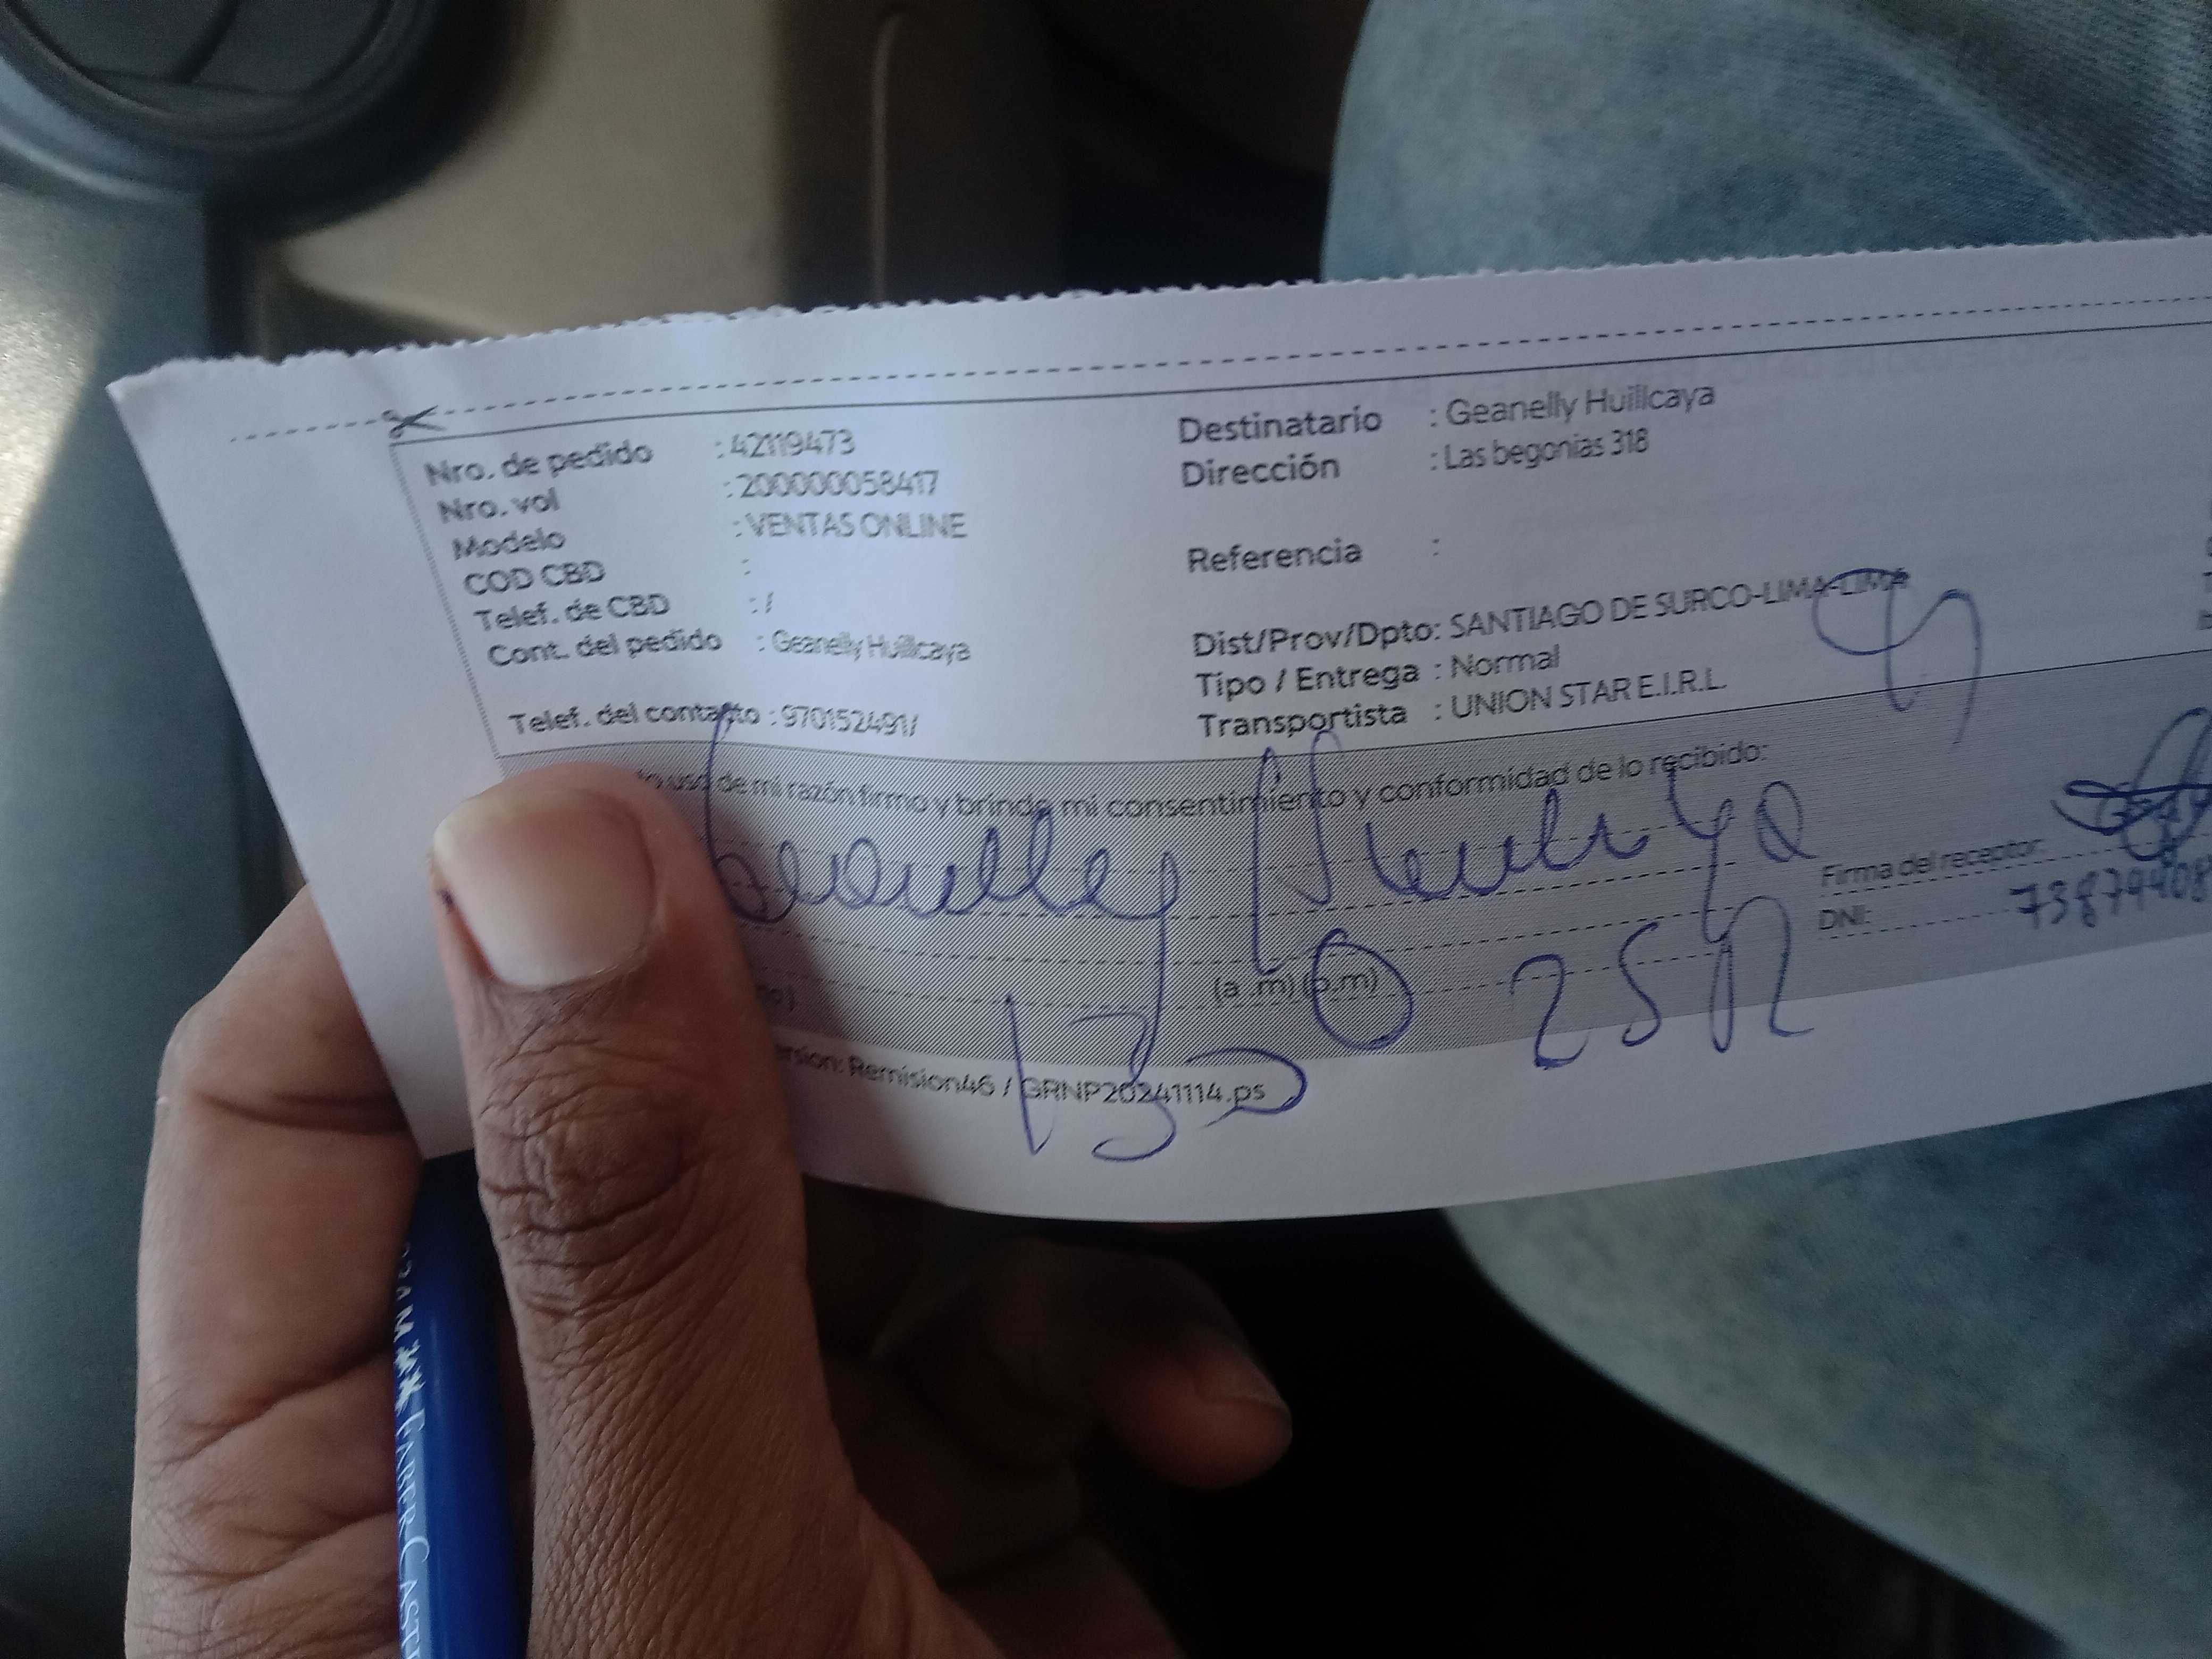 Nro. de pedido : 42119473
Nro. vol : 200000058417
Modelo : VENTAS ONLINE
COD CBD :
Telef. de CBD : /
Cont. del pedido : Geanelly Huillcaya
Telef. del contacto : 970152491/
Destinatario : Geanelly Huillcaya
Dirección : Las begonias 318
Referencia :
Dist/Prov/Dpto: SANTIAGO DE SURCO-LIMA-LIMA
Tipo / Entrega : Normal
Transportista : UNION STAR E.I.R.L.
uso de mi razón firmo y brindo mi consentimiento y conformidad de lo recibido:
Firma del receptor:
DNI:
(a .m) (p.m)
Remision46 / GRNP20241114.ps
FABER-CASTE